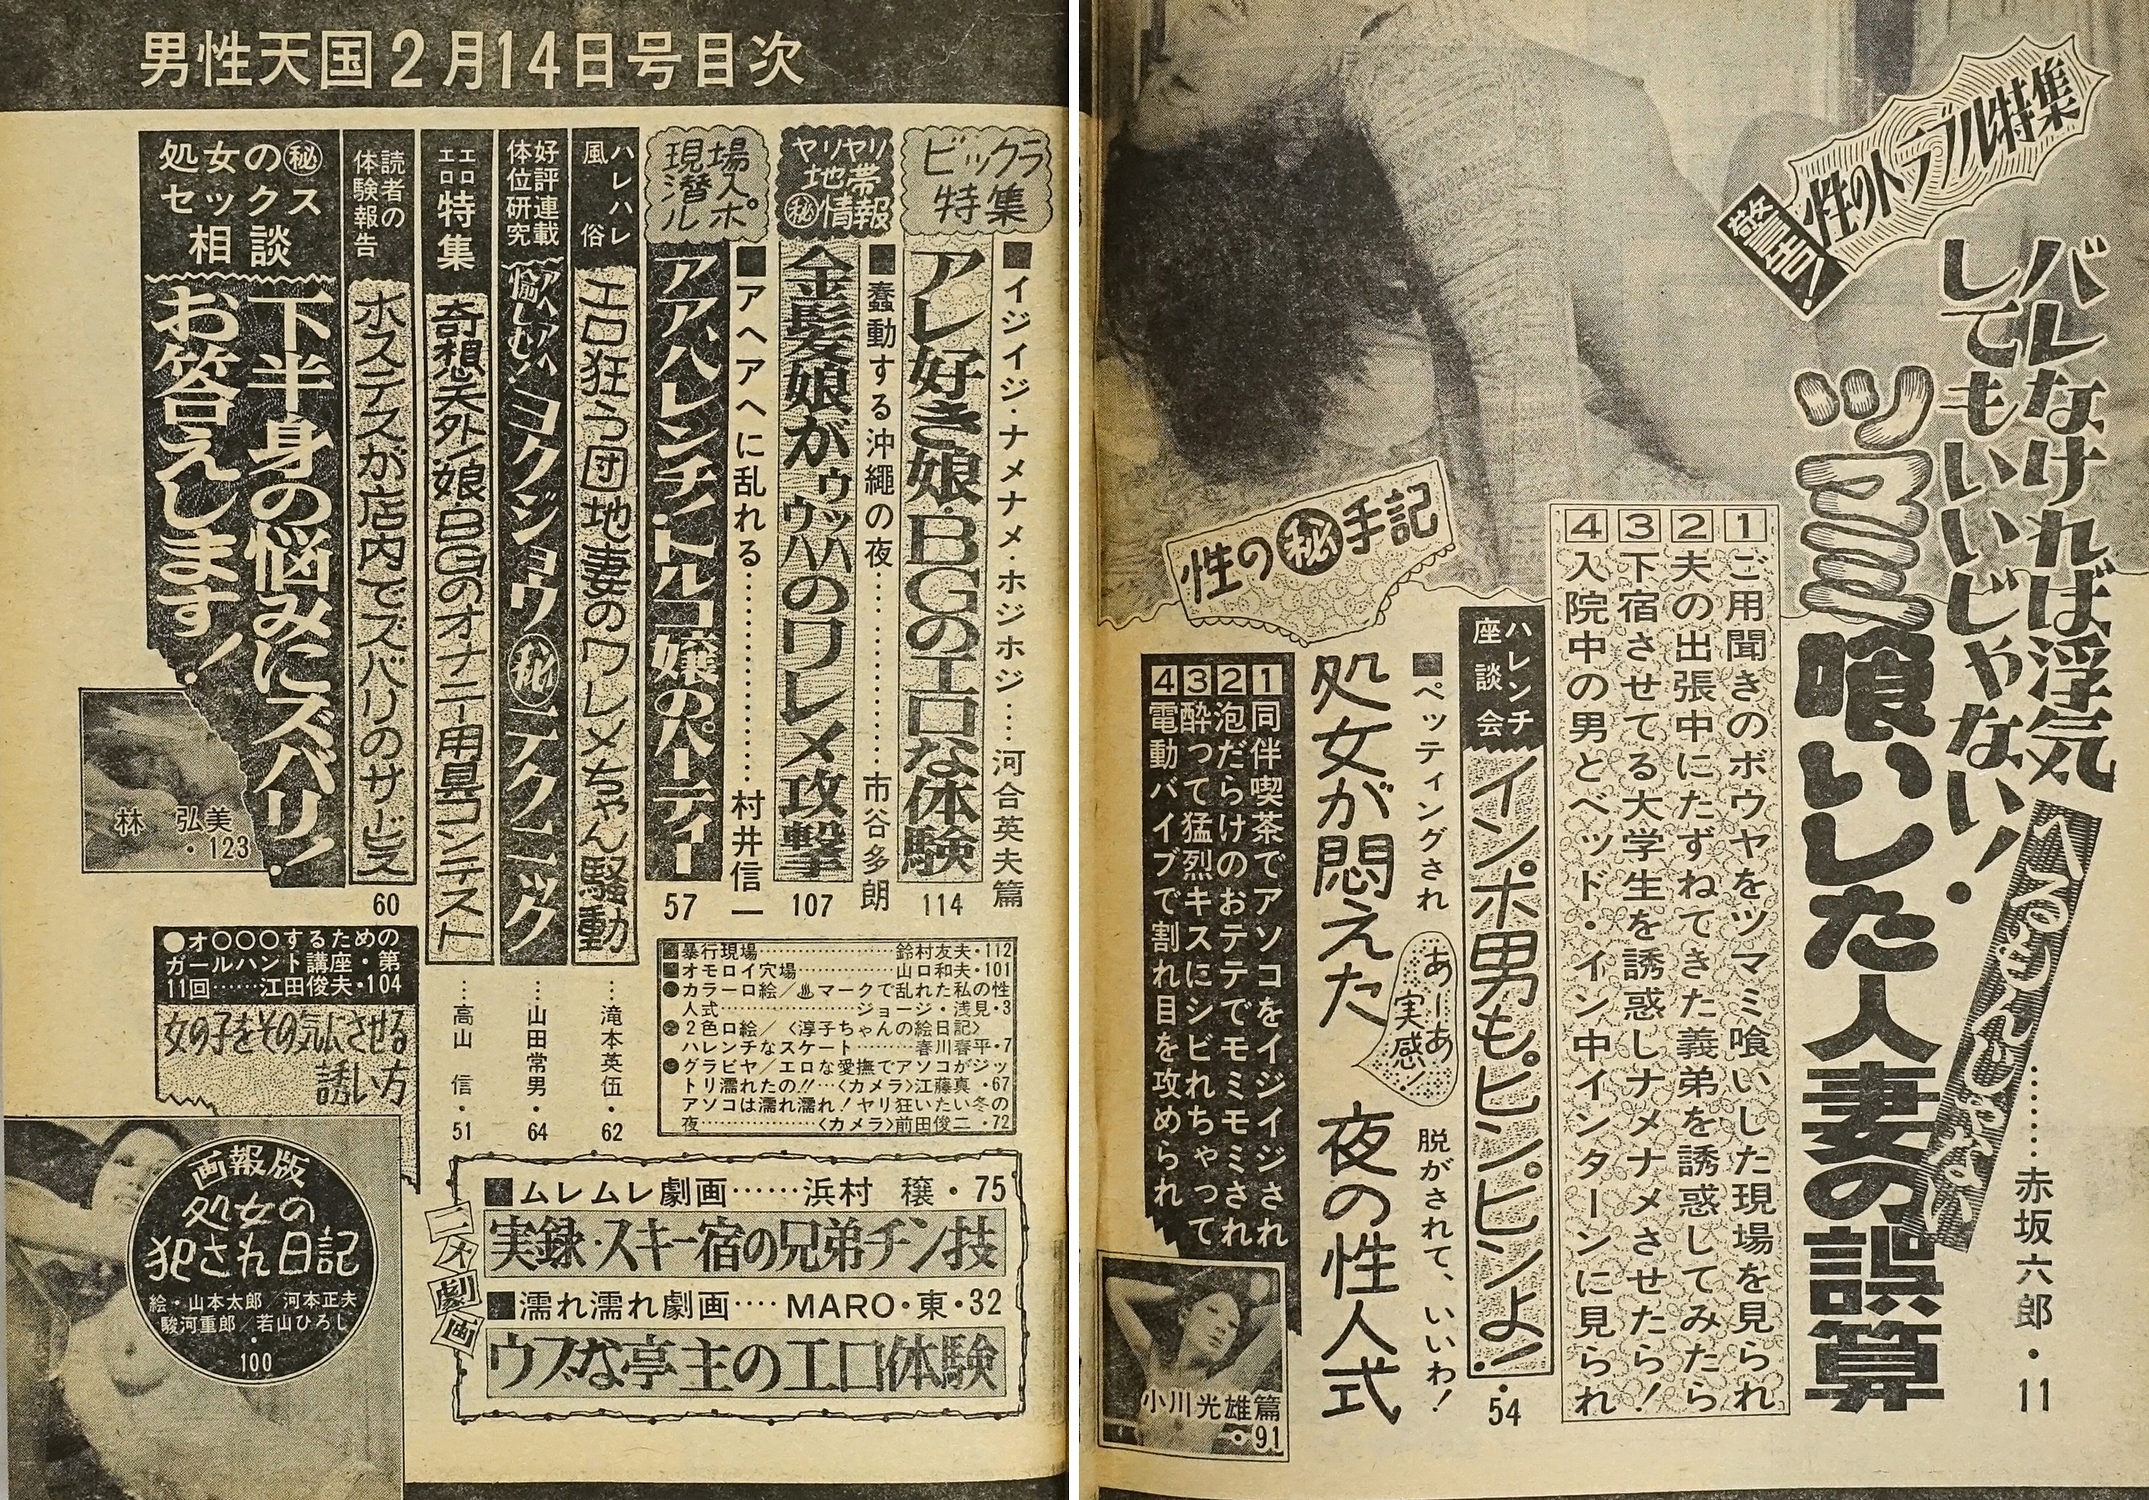 男性天国2月14日号目次
警告!
性のトラブル特集
バレなければ浮気
してもいいじゃない!
ツマミ喰いした人妻の誤算
赤坂六郎・11
1 ご用聞きのボウヤをツマミ喰いした現場を見られ
2 夫の出張中にたずねてきた義弟を誘惑してみたら
3 下宿させてる大学生を誘惑しナメナメさせたら!
4 入院中の男とベッド・イン中インターンに見られ
ハレンチ
座談会
インポ男もピンピンよ!
・54
性の㊙手記
■ペッティングされ
あーあ
実感!
脱がされて、いいわ!
処女が悶えた 夜の性人式
1 同伴喫茶でアソコをイジイジされ
2 泡だらけのおテテでモミモミされ
3 酔って猛烈キスにシビれちゃって
4 電動バイブで割れ目を攻められ
小川光雄篇
・91
ビックラ
特集
■イジイジ・ナメナメ・ホジホジ…河合英夫篇
アレ好き娘・BGのエロな体験
114
ヤリヤリ
地帯
㊙情報
■蠢動する沖縄の夜………市谷多朗
金髪娘がウッハウハのワレメ攻撃
107
現場
潜入
ルポ
■アヘアヘに乱れる…………村井信一
アア、ハレンチ!トルコ嬢のパーティー
57
ハレハレ
風俗
エロ狂う団地妻のワレメちゃん騒動
…滝本英伍・62
好評連載
体位研究
アヘアヘ
愉しむ!
ヨクジョウ㊙テクニック
…山田常男・64
エロエロ
特集
奇想天外!娘、BGのオナニー用具コンテスト
…高山 信・51
読者の
体験報告
ホステスが店内でズバリのサービス
60
処女の㊙
セックス
相談
下半身の悩みにズバリ!
お答えします!
林 弘美
・123
●オ〇〇〇するための
ガールハント講座・第
11回……江田俊夫・104
女の子をその気にさせる
誘い方
■暴行現場…………鈴村友夫・112
■オモロイ穴場…………山口和夫・101
●カラー口絵/♨マークで乱れた私の性
人式…………ジョージ・浅見・3
●2色口絵/〈淳子ちゃんの絵日記〉
ハレンチなスケート………春川春平・7
●グラビヤ/エロな愛撫でアソコがジッ
トリ濡れたの!!…〈カメラ〉江藤真・67
アソコは濡れ濡れ!ヤリ狂いたい冬の
夜…………〈カメラ〉前田俊二・72
二大劇画
■ムレムレ劇画……浜村 穣・75
実録・スキー宿の兄弟チン技
■濡れ濡れ劇画…・MARO・東・32
ウブな亭主のエロ体験
画報版
処女の
犯され日記
絵・山本太郎/河本正夫
駿河重郎/若山ひろし
・
100